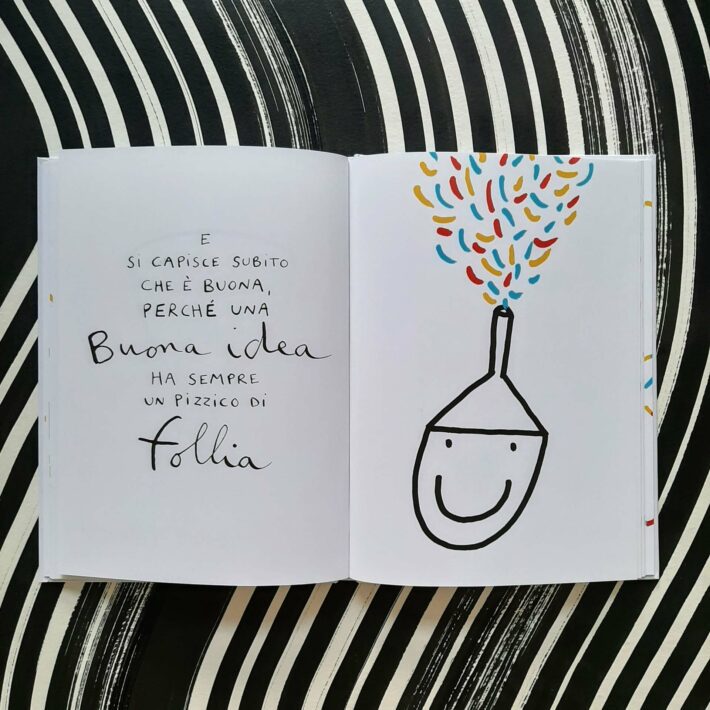 E
SI CAPISCE SUBITO
CHE È BUONA,
PERCHÉ UNA
Buona idea
HA SEMPRE
UN PIZZICO DI
follia